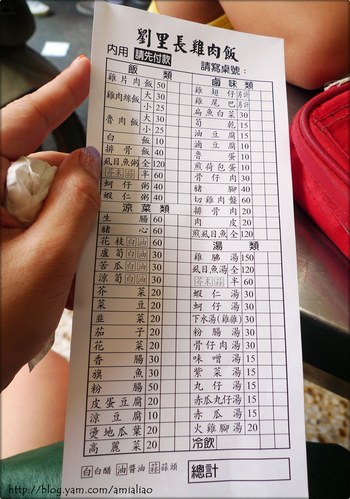 劉里長雞肉飯
內用 請先付款 請寫桌號：
飯類
雞片肉飯 50
雞肉絲飯 大 30
小 25
魯肉飯 大 30
小 25
白飯 10
排骨飯 40
虱目魚粥 全 120
半 60
蚵仔粥 40
蝦仁粥 40
涼菜類
生腸 60
豬心 60
花枝 白 油 60
蘆筍 白 油 30
苦瓜 白 油 30
涼筍 白 油 30
芥菜 20
菜豆 20
韭菜 20
茄子 20
花菜 20
香腸 30
旗魚 30
粉腸 50
皮蛋豆腐 20
涼豆腐 10
燙地瓜葉 20
高麗菜 20
白 白醋 油 油膏 蒜 蒜頭
滷味類
雞翅仔
雞尾巴
扁魚白菜 30
筍乾 15
油豆腐 15
滷豆腐 10
魯蛋 10
煎荷包蛋 10
骨仔肉 30
豬腳 40
切雞肉盤
排骨肉 20
肉皮 20
煎虱目魚 全 120
湯類
雞腳湯 150
虱目魚湯 全 120
半 60
蝦仁湯 30
蚵仔湯 30
下水湯(雞雜) 30
粉腸湯 30
骨仔肉湯 30
味噌湯 15
紫菜湯 15
丸仔湯 15
赤瓜丸仔湯 15
赤瓜湯 15
火雞腳湯 20
冷飲
總計
http://blog.yam.com/amialiao